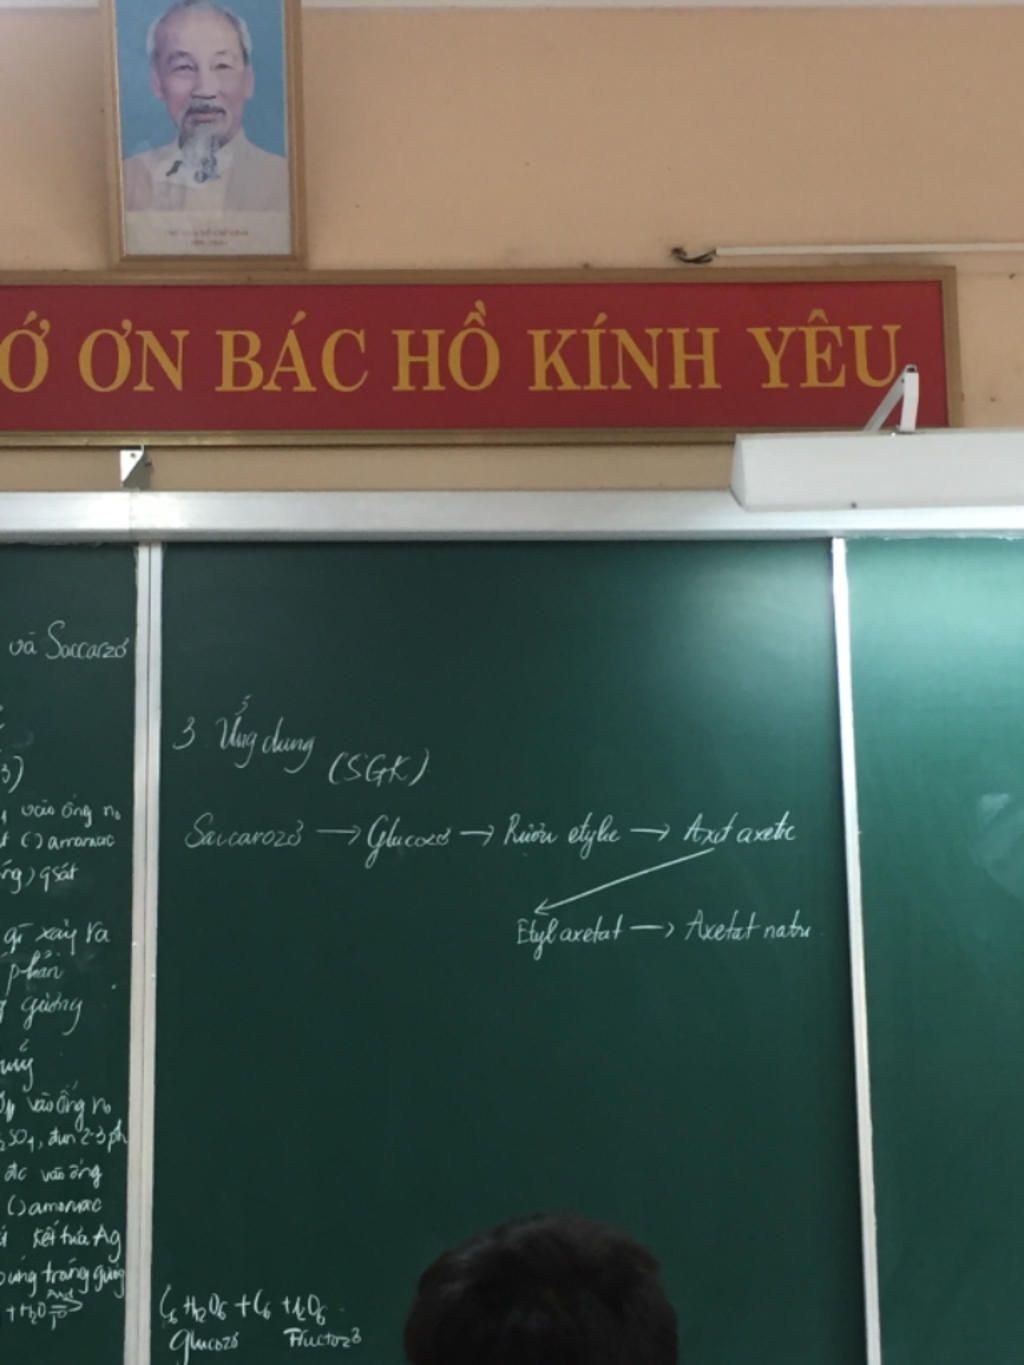 Ớ ƠN BÁC HỒ KÍNH YÊU
và Saccarzơ
3)
vào ống no
t () amoniac
ống) qsát
gì xảy ra
phản
gương
vào ống no
SO4, đun 2-3 ph
đc vào ống
() amoniac
kết tủa Ag
ứng tráng gương
+ H2O
3. Ứng dụng
(SGK)
Saccarozơ → Glucozơ → Rượu etylic → Axit axetic
Etyl axetat → Axetat natri
C6H12O6 + C6H12O6
Glucozơ Fructozơ